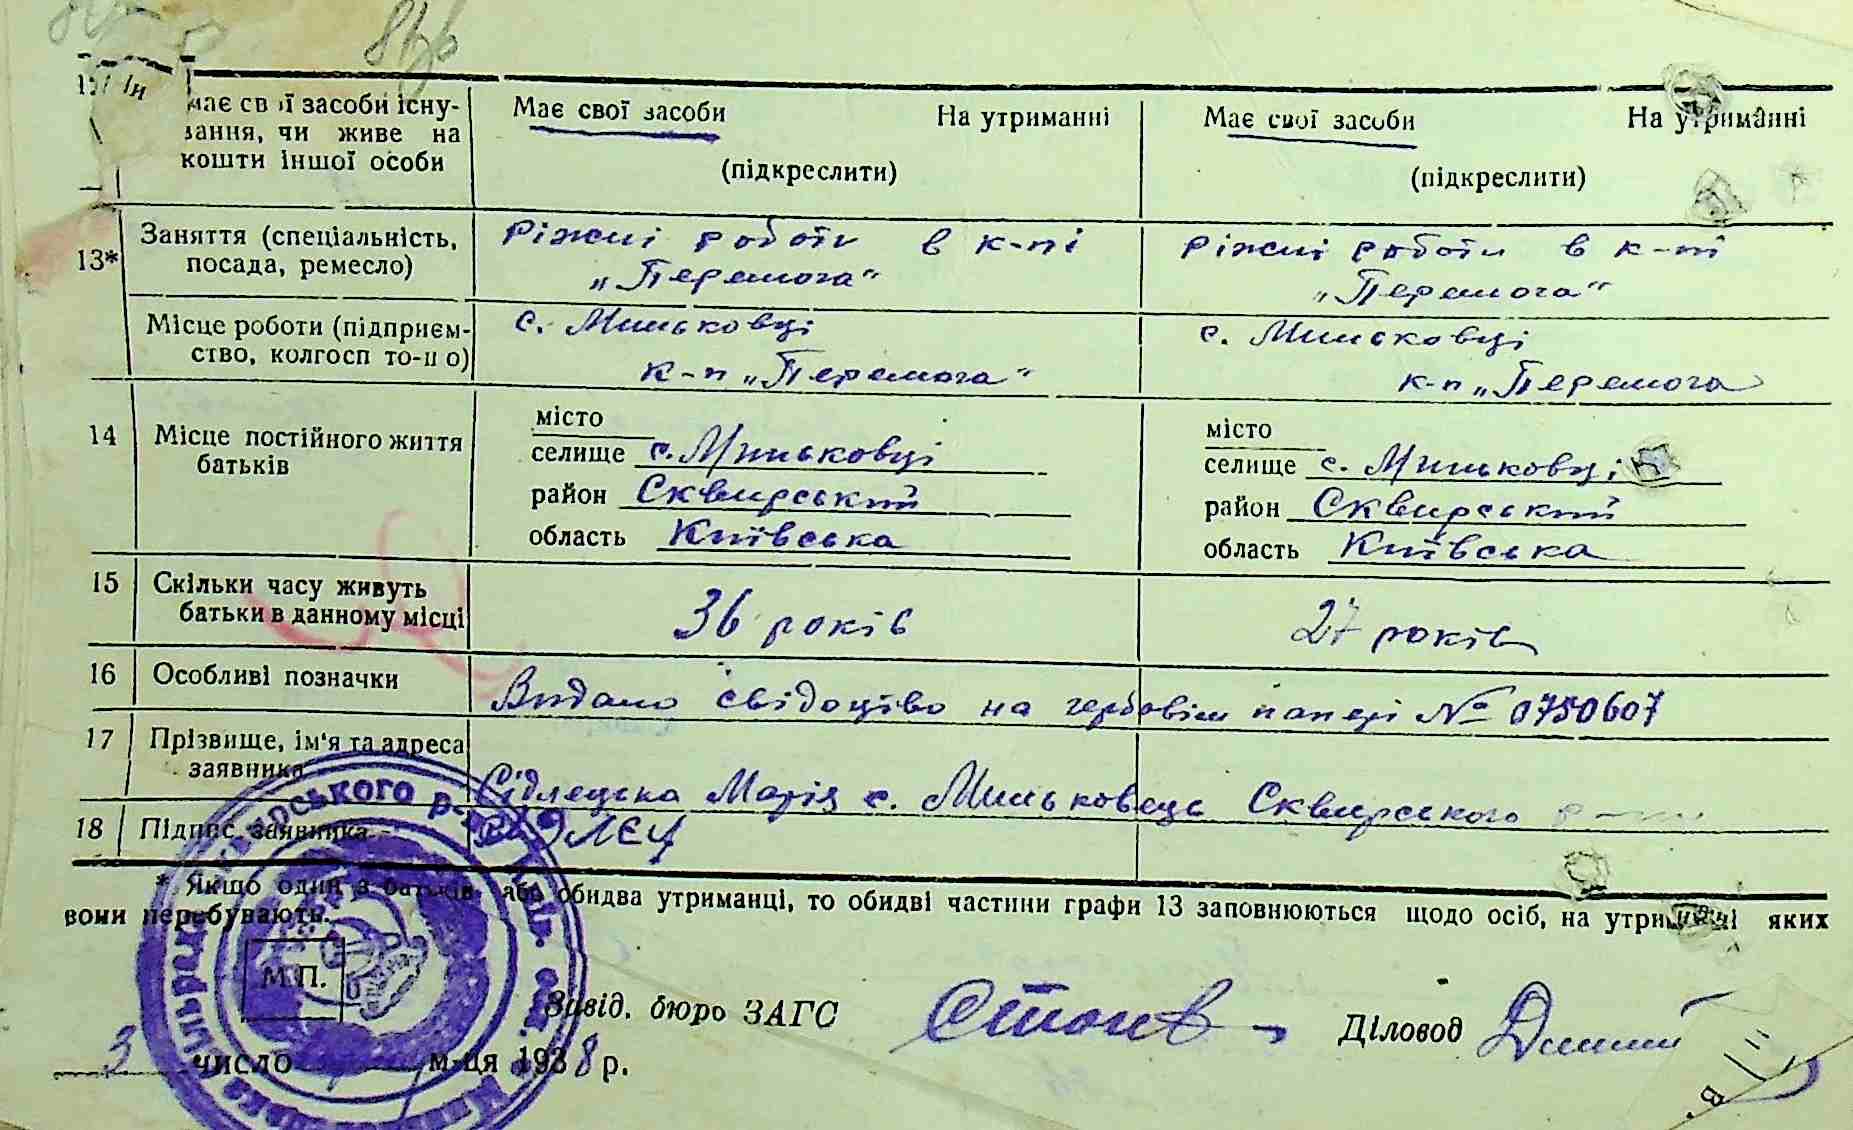 має свої засоби існу-
вання, чи живе на
кошти іншої особи
Має свої засоби На утриманні
(підкреслити)
Має свої засоби На утриманні
(підкреслити)
13* Заняття (спеціальність,
посада, ремесло)
ріжні роботи в к-пі
„Перемога“
ріжні роботи в к-пі
„Перемога“
Місце роботи (підприєм-
ство, колгосп то-що)
с. Миньковці
к-п „Перемога“
с. Миньковці
к-п „Перемога
14 Місце постійного життя
батьків
місто
селище с. Миньковці
район Сквирський
область Київська
місто
селище с. Миньковці
район Сквирський
область Київська
15 Скільки часу живуть
батьки в данному місці
36 років
27 років
16 Особливі позначки
Видано свідоцтво на гербовім папері № 0750607
17 Прізвище, ім'я та адреса
заявника
Сідлецька Марія с. Миньковець Сквирського
18 Підпис заявника
* Якщо один з батьків або обидва утриманці, то обидві частини графи 13 заповнюються щодо осіб, на утриманні яких
вони перебувають.
М.П.
Завід. бюро ЗАГС
Діловод
3 число м-ця 1938 р.